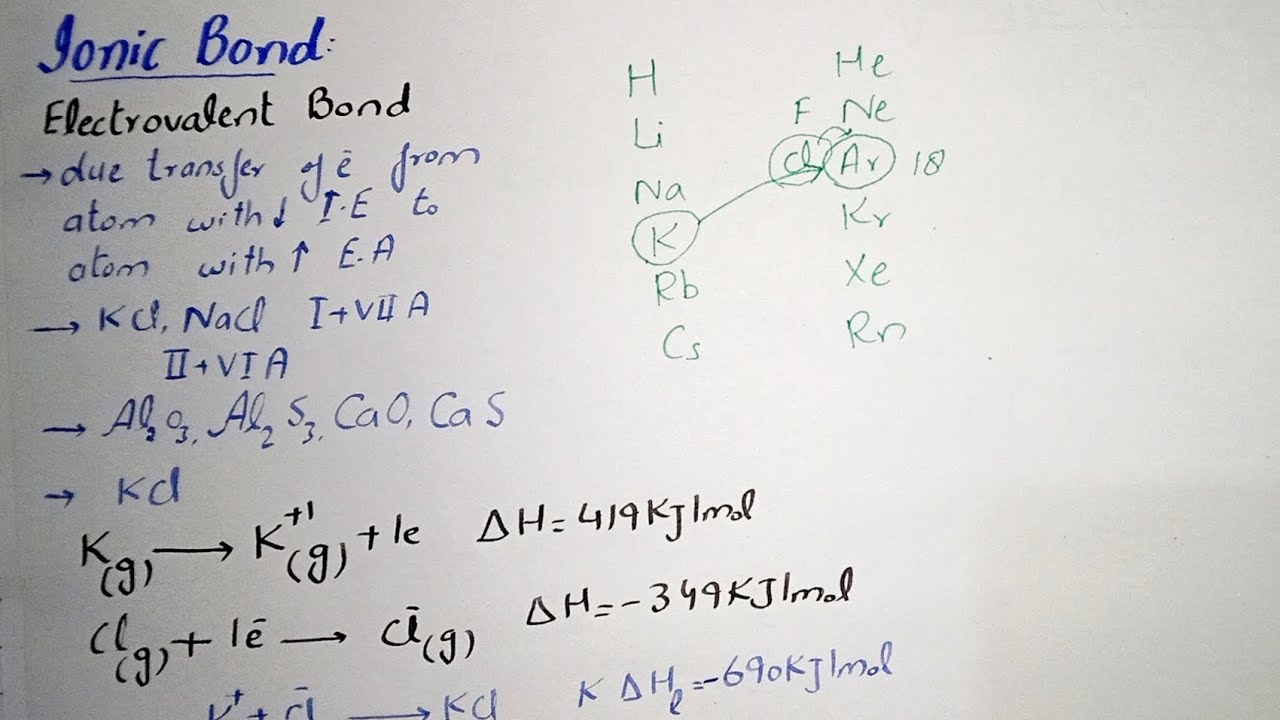 Ionic Bond:
Electrovalent Bond
→ due transfer of ē from
atom with ↓ I.E to
atom with ↑ E.A
→ KCl, NaCl I+VII A
II+VI A
→ Al₂O₃, Al₂S₃, CaO, CaS
→ KCl
K(g) → K⁺¹(g) + 1e ΔH = 419KJ/mol
Cl(g) + 1ē → Cl̄(g) ΔH = -349KJ/mol
K⁺ + Cl̄ → KCl K ΔHₗ = -690KJ/mol
H He
Li F Ne
Na Cl Ar 18
K Kr
Rb Xe
Cs Rn